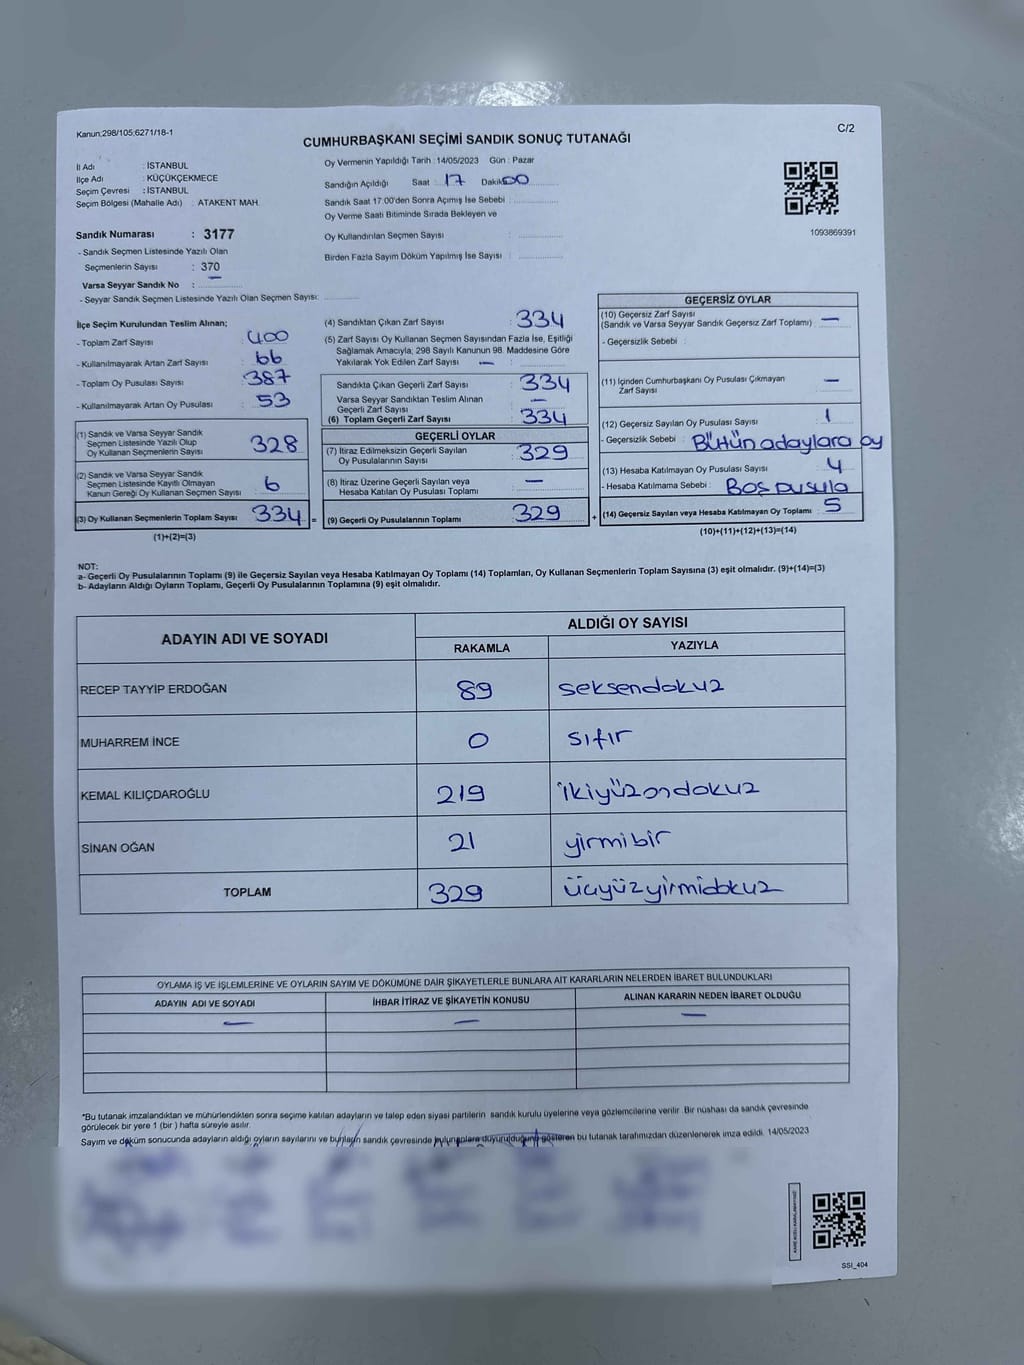 Kanun;298/105;6271/18-1
C/2
CUMHURBAŞKANI SEÇİMİ SANDIK SONUÇ TUTANAĞI
İl Adı : İSTANBUL
İlçe Adı : KÜÇÜKÇEKMECE
Seçim Çevresi : İSTANBUL
Seçim Bölgesi (Mahalle Adı) : ATAKENT MAH.
Sandık Numarası : 3177
- Sandık Seçmen Listesinde Yazılı Olan
Seçmenlerin Sayısı : 370
Varsa Seyyar Sandık No : —
- Seyyar Sandık Seçmen Listesinde Yazılı Olan Seçmen Sayısı:
Oy Vermenin Yapıldığı Tarih : 14/05/2023 Gün : Pazar
Sandığın Açıldığı Saat : 17 Dakika 00
Sandık Saat 17.00'den Sonra Açımış İse Sebebi :
Oy Verme Saati Bitiminde Sırada Bekleyen ve
Oy Kullandırılan Seçmen Sayısı :
Birden Fazla Sayım Döküm Yapılmış İse Sayısı :
1093869391
İlçe Seçim Kurulundan Teslim Alınan;
- Toplam Zarf Sayısı : 400
- Kullanılmayarak Artan Zarf Sayısı : 66
- Toplam Oy Pusulası Sayısı : 387
- Kullanılmayarak Artan Oy Pusulası : 53
(1) Sandık ve Varsa Seyyar Sandık
Seçmen Listesinde Yazılı Olup
Oy Kullanan Seçmenlerin Sayısı : 328
(2) Sandık ve Varsa Seyyar Sandık
Seçmen Listesinde Kayıtlı Olmayan
Kanun Gereği Oy Kullanan Seçmen Sayısı : 6
(3) Oy Kullanan Seçmenlerin Toplam Sayısı : 334 =
(1)+(2)=(3)
(4) Sandıktan Çıkan Zarf Sayısı : 334
(5) Zarf Sayısı Oy Kullanan Seçmen Sayısından Fazla İse, Eşitliği
Sağlamak Amacıyla; 298 Sayılı Kanunun 98. Maddesine Göre
Yakılarak Yok Edilen Zarf Sayısı : —
Sandıkta Çıkan Geçerli Zarf Sayısı : 334
Varsa Seyyar Sandıktan Teslim Alınan
Geçerli Zarf Sayısı : —
(6) Toplam Geçerli Zarf Sayısı : 334
GEÇERLİ OYLAR
(7) İtiraz Edilmeksizin Geçerli Sayılan
Oy Pusulalarının Sayısı : 329
(8) İtiraz Üzerine Geçerli Sayılan veya
Hesaba Katılan Oy Pusulası Toplamı : —
(9) Geçerli Oy Pusulalarının Toplamı : 329 +
GEÇERSİZ OYLAR
(10) Geçersiz Zarf Sayısı
(Sandık ve Varsa Seyyar Sandık Geçersiz Zarf Toplamı) : —
- Geçersizlik Sebebi :
(11) İçinden Cumhurbaşkanı Oy Pusulası Çıkmayan
Zarf Sayısı : —
(12) Geçersiz Sayılan Oy Pusulası Sayısı : 1
- Geçersizlik Sebebi : Bütün adaylara oy
(13) Hesaba Katılmayan Oy Pusulası Sayısı : 4
- Hesaba Katılmama Sebebi : Boş pusula
(14) Geçersiz Sayılan veya Hesaba Katılmayan Oy Toplamı : 5
(10)+(11)+(12)+(13)=(14)
NOT:
a- Geçerli Oy Pusulalarının Toplamı (9) ile Geçersiz Sayılan veya Hesaba Katılmayan Oy Toplamı (14) Toplamları, Oy Kullanan Seçmenlerin Toplam Sayısına (3) eşit olmalıdır. (9)+(14)=(3)
b- Adayların Aldığı Oyların Toplamı, Geçerli Oy Pusulalarının Toplamına (9) eşit olmalıdır.
ADAYIN ADI VE SOYADI
ALDIĞI OY SAYISI
RAKAMLA YAZIYLA
RECEP TAYYİP ERDOĞAN 89 seksendokuz
MUHARREM İNCE 0 sıfır
KEMAL KILIÇDAROĞLU 219 ikiyüzondokuz
SİNAN OĞAN 21 yirmibir
TOPLAM 329 üçyüzyirmidokuz
OYLAMA İŞ VE İŞLEMLERİNE VE OYLARIN SAYIM VE DÖKÜMÜNE DAİR ŞİKAYETLERLE BUNLARA AİT KARARLARIN NELERDEN İBARET BULUNDUKLARI
ADAYIN ADI VE SOYADI İHBAR İTİRAZ VE ŞİKAYETİN KONUSU ALINAN KARARIN NEDEN İBARET OLDUĞU
— — —
*Bu tutanak imzalandıktan ve mühürlendikten sonra seçime katılan adayların ve talep eden siyasi partilerin sandık kurulu üyelerine veya gözlemcilerine verilir. Bir nüshası da sandık çevresinde
görülecek bir yere 1 (bir) hafta süreyle asılır.
Sayım ve döküm sonucunda adayların aldığı oyların sayılarını ve bunların sandık çevresinde bulunanlara duyurulduğunu gösteren bu tutanak tarafımızdan düzenlenerek imza edildi. 14/05/2023
SSI_404